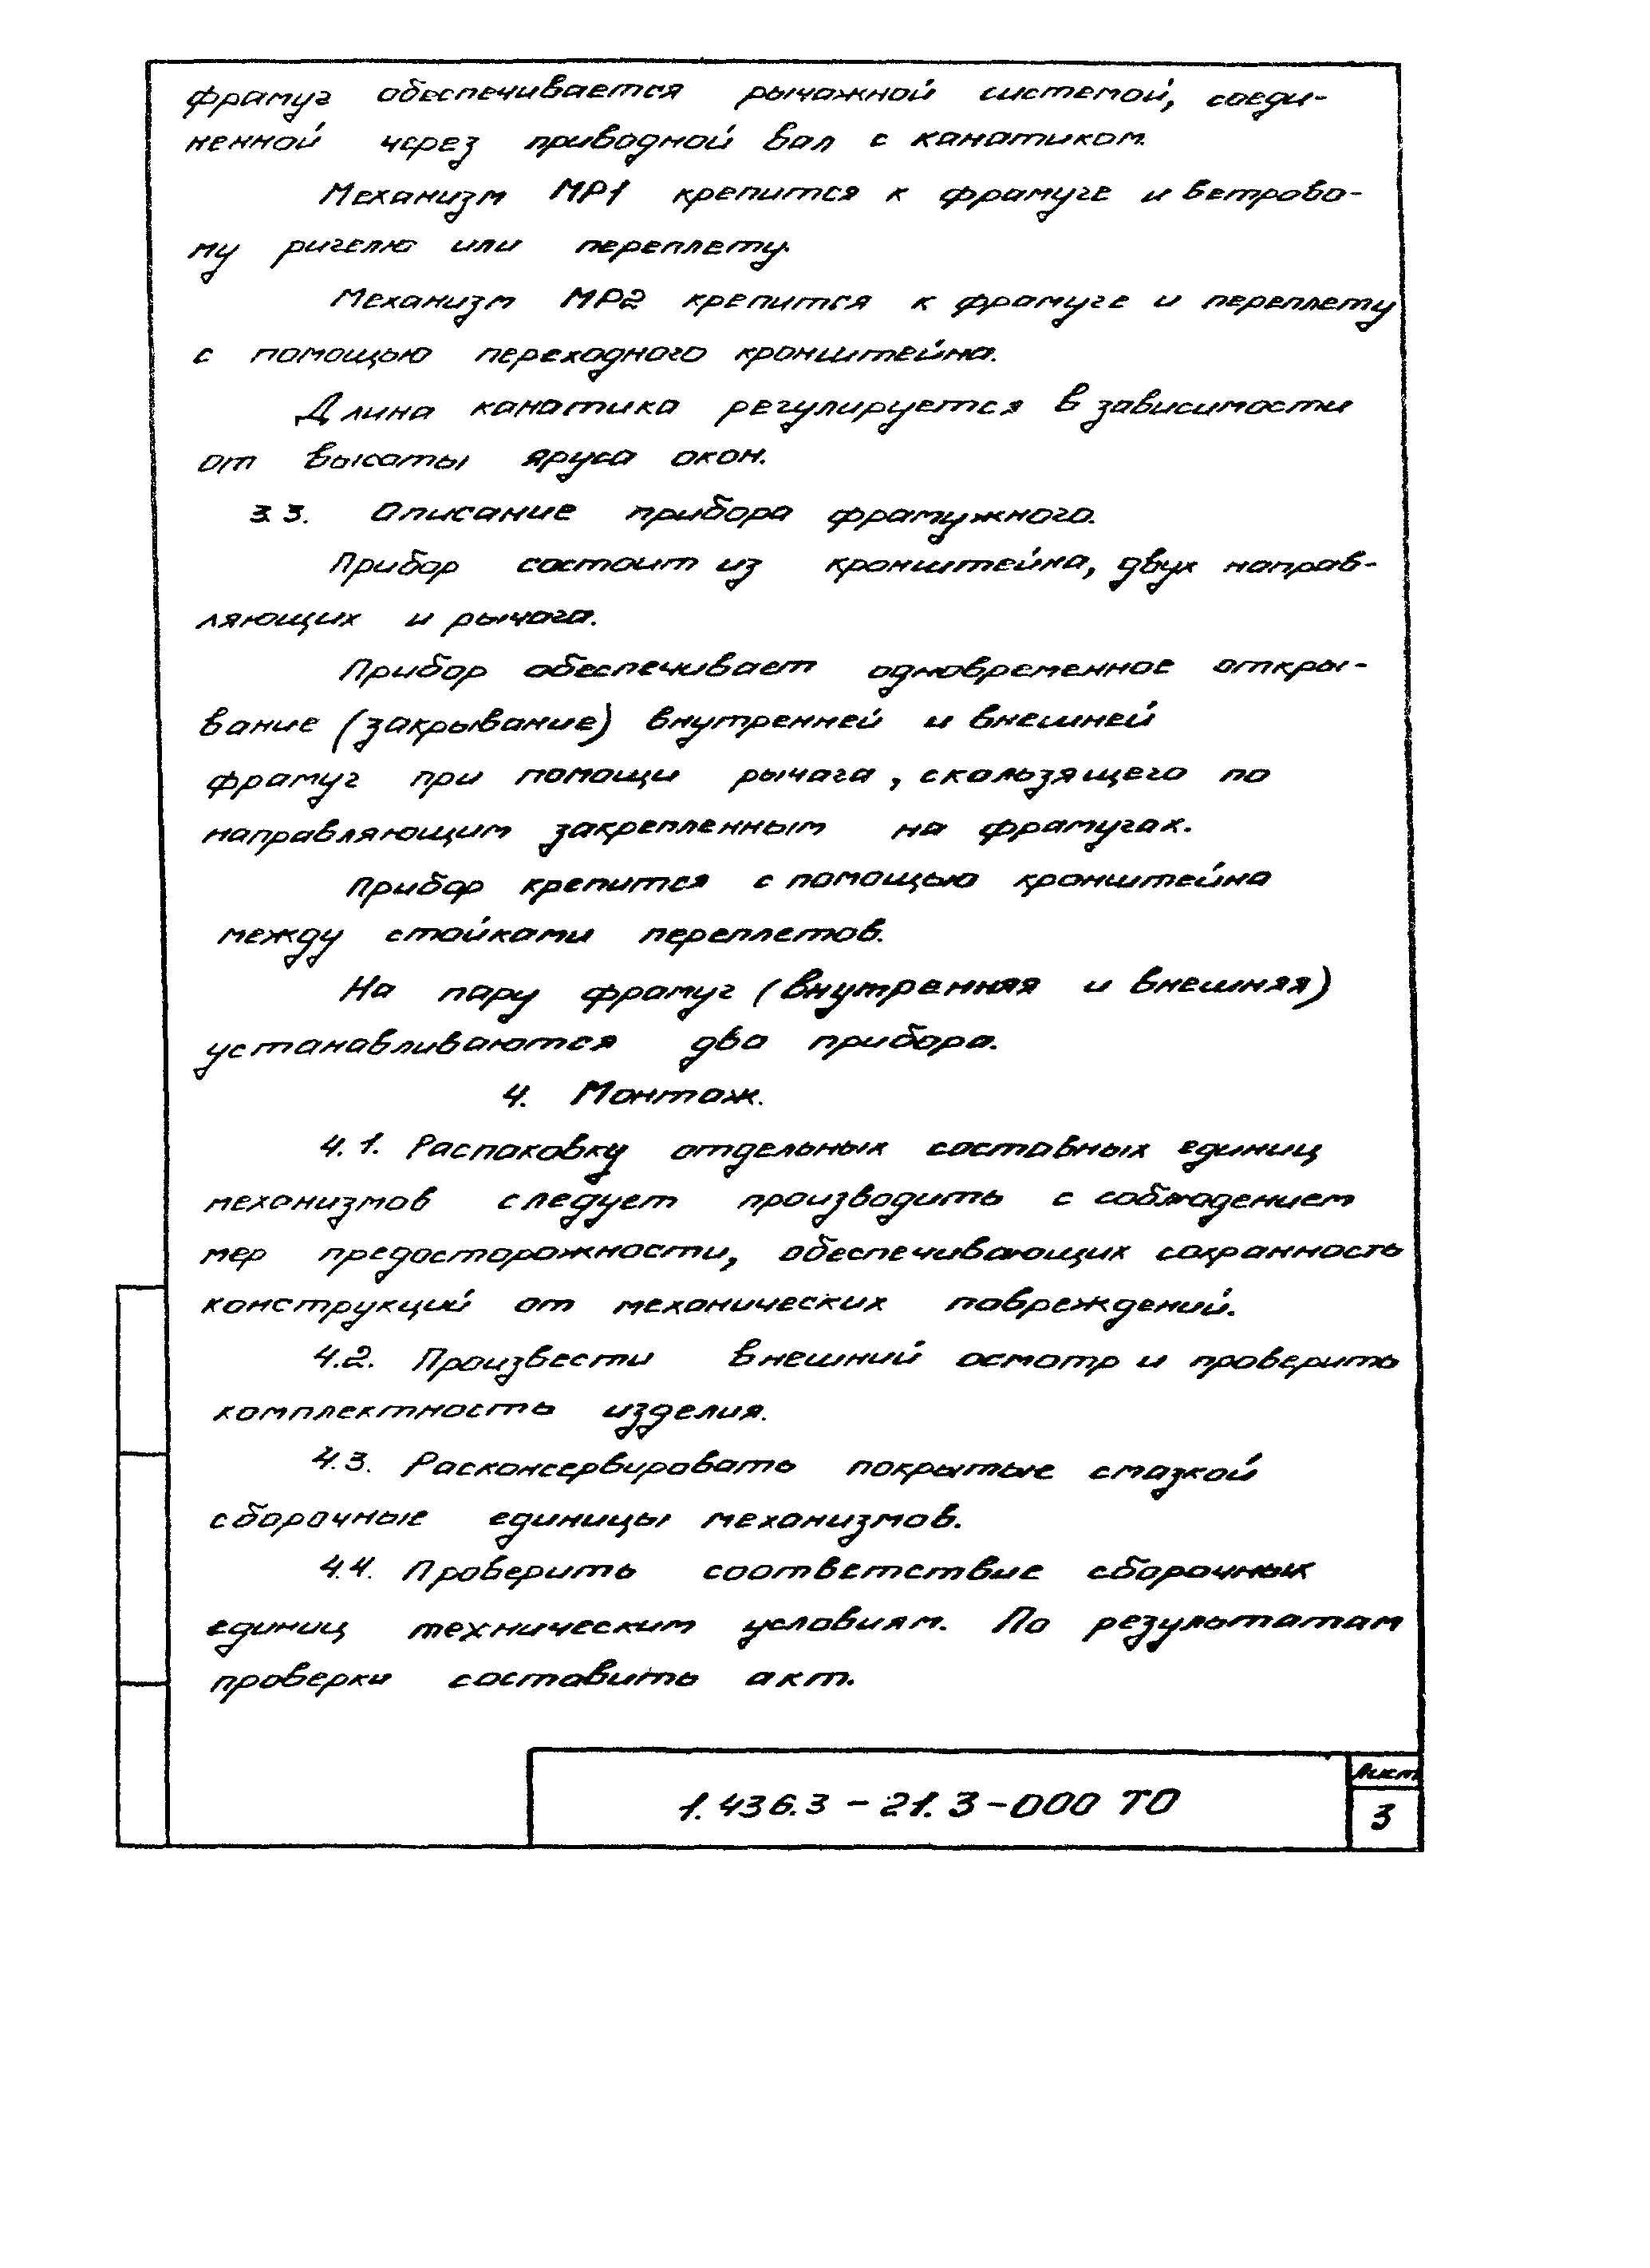 фрамуг обеспечивается рычажной системой, соеди-
ненной через приводной вал с канатиком.
Механизм МР1 крепится к фрамуге и ветрово-
му ригелю или переплету.
Механизм МР2 крепится к фрамуге и переплету
с помощью переходного кронштейна.
Длина канатика регулируется в зависимости
от высоты яруса окон.
3.3. Описание прибора фрамужного.
Прибор состоит из кронштейна, двух направ-
ляющих и рычага.
Прибор обеспечивает одновременное откры-
вание (закрывание) внутренней и внешней
фрамуг при помощи рычага, скользящего по
направляющим закрепленным на фрамугах.
Прибор крепится с помощью кронштейна
между стойками переплетов.
На пару фрамуг (внутренняя и внешняя)
устанавливаются два прибора.
4. Монтаж.
4.1. Распаковку отдельных составных единиц
механизмов следует производить с соблюдением
мер предосторожности, обеспечивающих сохранность
конструкций от механических повреждений.
4.2. Произвести внешний осмотр и проверить
комплектность изделия.
4.3. Расконсервировать покрытые смазкой
сборочные единицы механизмов.
4.4. Проверить соответствие сборочных
единиц техническим условиям. По результатам
проверки составить акт.
1.436.3-21.3-000 ТО
Лист
3